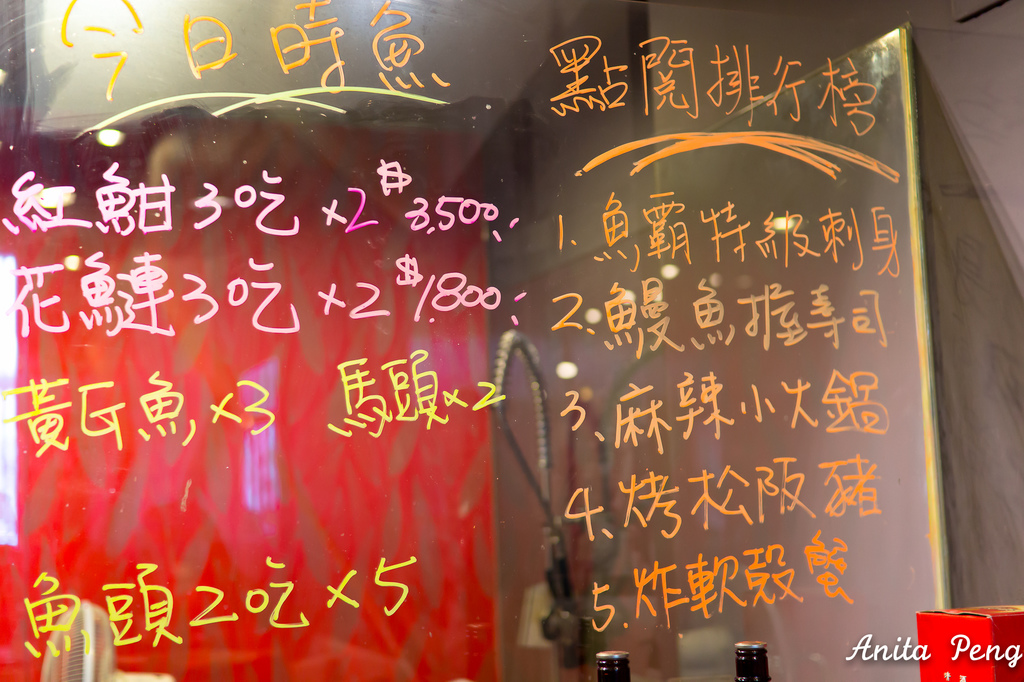 今日時魚
紅魽3吃 x2 $3,500.
花鰱3吃 x2 $1,800.
黃臣魚x3 馬頭x2
魚頭2吃x5
點閱排行榜
1. 魚霸特級刺身
2. 鰻魚握壽司
3、麻辣小火鍋
4、烤松阪豬
5. 炸軟殼蟹
Anita Peng